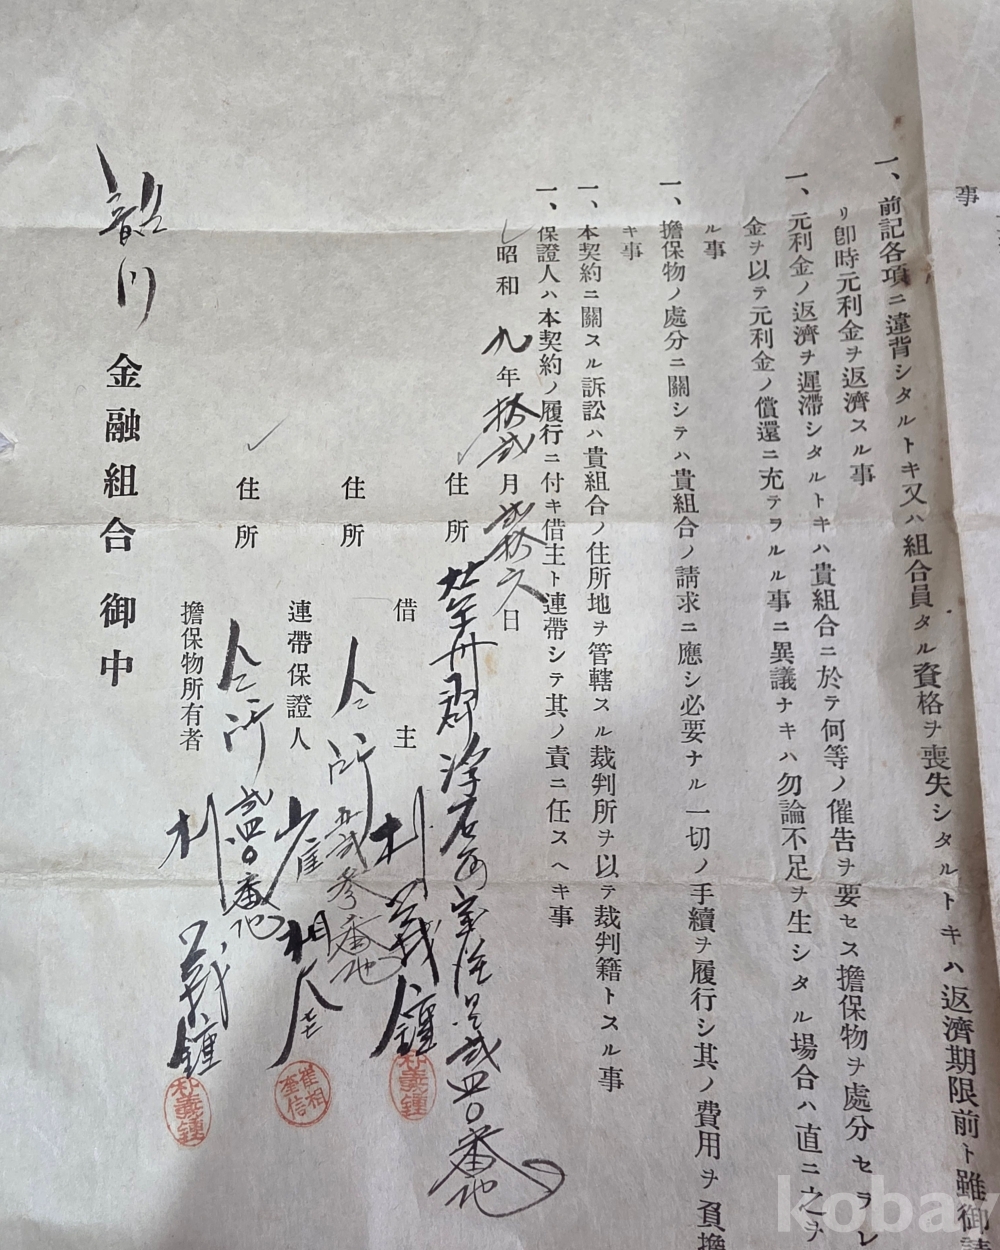 事
一、前記各項ニ違背シタルトキ又ハ組合員タル資格ヲ喪失シタルトキハ返濟期限前ト雖御
リ卽時元利金ヲ返濟スル事
一、元利金ノ返濟ヲ遲滯シタルトキハ貴組合ニ於テ何等ノ催告ヲ要セス擔保物ヲ處分セラレ
金ヲ以テ元利金ノ償還ニ充テラルル事ニ異議ナキハ勿論不足ヲ生シタル場合ハ直ニ之ヲ
ル事
一、擔保物ノ處分ニ關シテハ貴組合ノ請求ニ應シ必要ナル一切ノ手續ヲ履行シ其ノ費用ヲ負擔
キ事
一、本契約ニ關スル訴訟ハ貴組合ノ住所地ヲ管轄スル裁判所ヲ以テ裁判籍トスル事
一、保證人ハ本契約ノ履行ニ付キ借主ト連帶シテ其ノ責ニ任スヘキ事
昭和九年拾弐月弐拾六日
住所 郡 弐四〇番地
借主 朴義鍾
朴義鍾
住所 仝所 番地
連帶保證人 崔相奎
崔相奎信
住所 仝所弐四〇番地
擔保物所有者 朴義鍾
朴義鍾
韶川金融組合御中
kobay